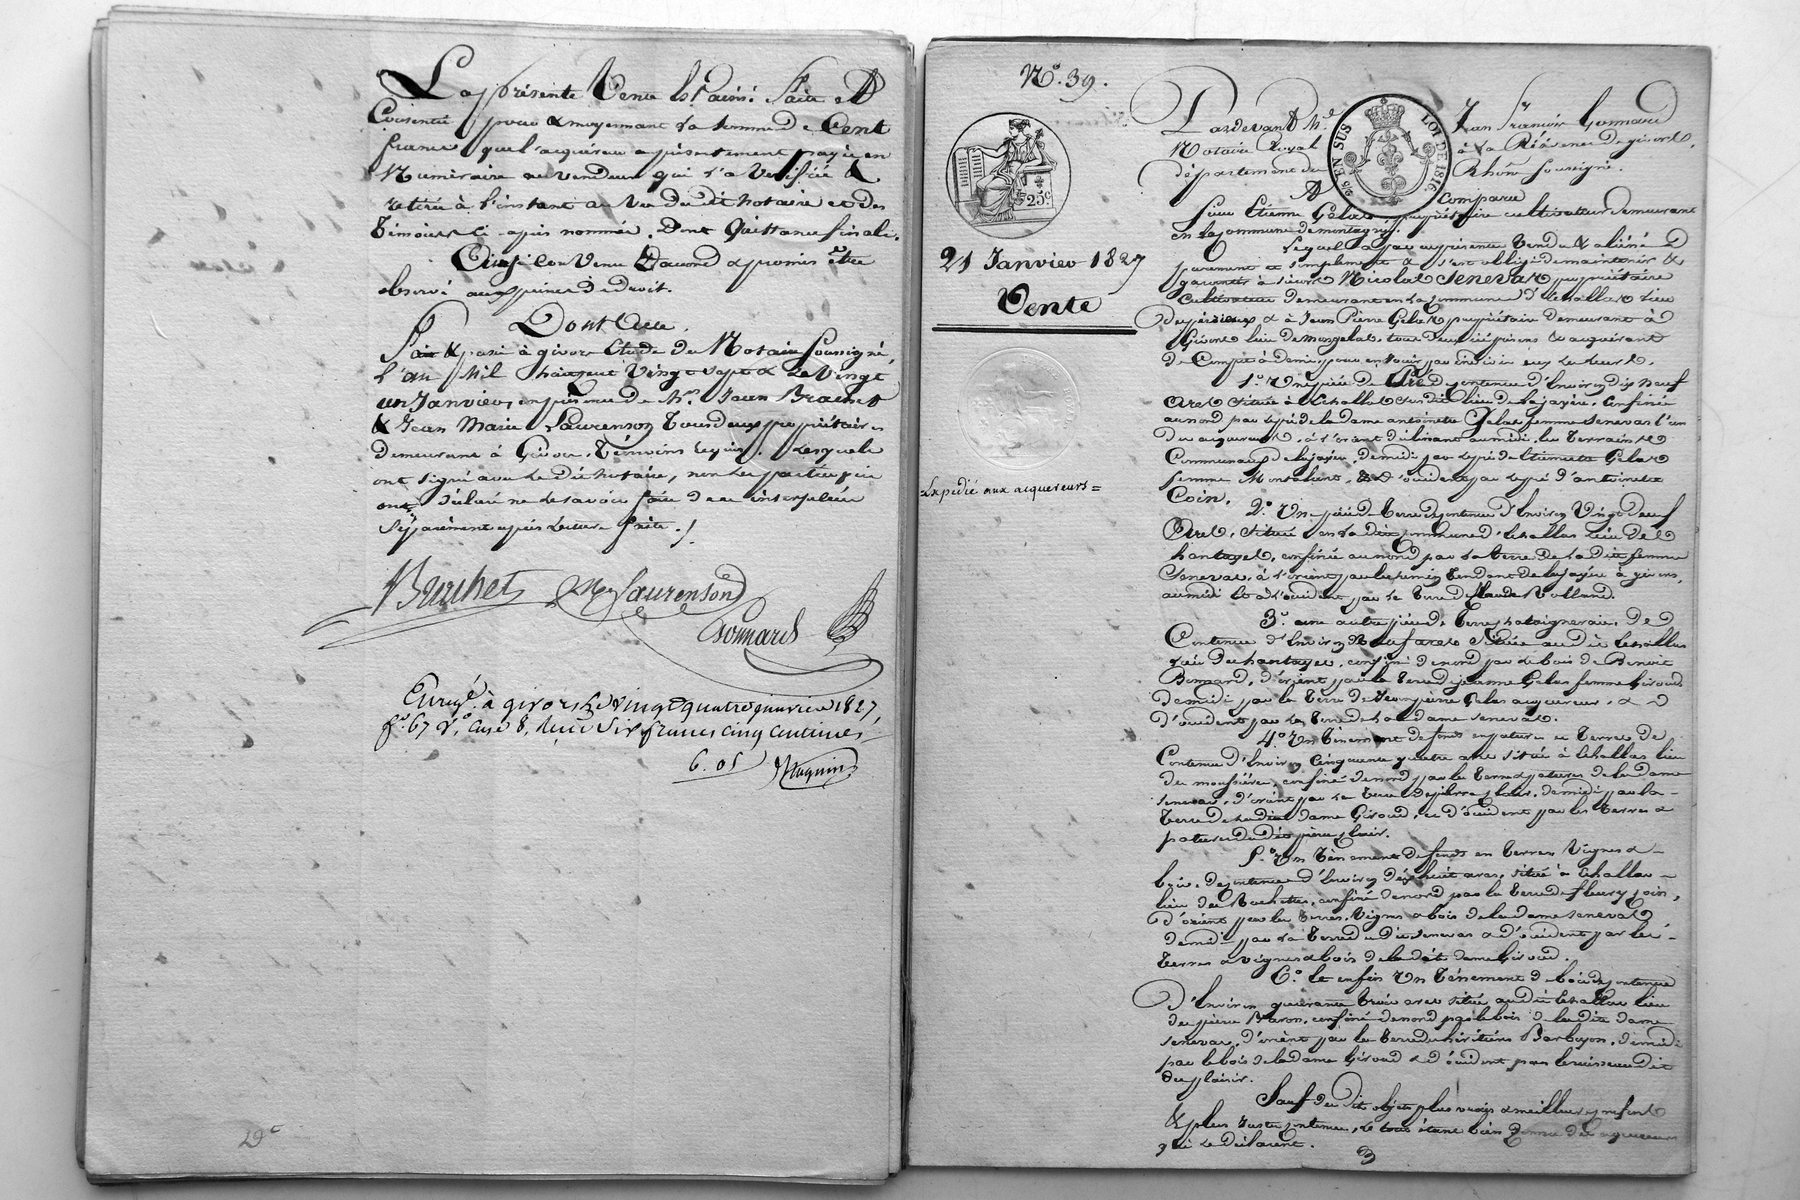 La présente Vente Est ainsi faite et
Consentie pour & moyennant la somme de Cent
francs que l'acquéreur a présentement payé en
Numéraire au vendeur qui l'a Vérifiée &
retirée à l'instant au Vu du dit notaire et des
Témoins ci-après nommés. Dont Quittance finale.
Ainsi Convenu D'accord & promis être
observé aux peines de droit.
Dont Acte.
Fait & passé à givors Etude du Notaire soussigné,
L'an Mil huit cent Vingt sept & Le Vingt
un Janvier, en présence de Mrs. Jean Brachet
& Jean Marie Laurenson Tous deux propriétaires
demeurant à Givors, Témoins requis. Lesquels
ont signé avec Le dit notaire, non Les parties qui
ont déclaré ne le savoir faire de ce interpellées
Séparément après Lecture faite./.
Brachet Laurenson
Gonnard
Enregé. à givors le vingt quatre janvier 1827,
fo. 67 vo. case 8, Reçu six francs cinq centimes
6. 05 Maguin
29e
No. 39.
25c
21 Janvier 1827
Vente
Expédié aux acquereurs =
EN SUS LOI DE 1816.
Pardevant Me. Jean François Gonnard
Notaire Royal à la Résidence de givors,
département du Rhône soussigné.
A Comparu
Sieur Etienne Gelas propriétaire cultivateur demeurant
en la commune de montagny.
Lequel a par ces présentes Vendu & aliéné
purement et simplement & s'est obligé de maintenir &
garantir à sieur Nicolas Senevas propriétaire
Cultivateur demeurant en La commune d'Echallas Lieu
& à Jean Pierre Gelas propriétaire demeurant à
Givors lieu de montgelas, tous deux ici présens & acquérant
de Compte à demi, pour en jouir
1o. Une pièce de Pré de contenue d'Environ dix neuf
Ares située à Echallas susdit Lieu de Lajayère, Confinée
au nord par le pré de la dame antoinette Gelas femme Senevas l'un
des acquereurs, à l'orient déclinant au midi les Terreins
Communaux de lajayère, de midi par le pré de Etiennette Gelas
femme & d'occident par le pré d'antoinette
Coin.
2o. Une pièce de Terre de contenue d'Environ Vingt neuf
Ares, Située en La dite commune d'Echallas Lieu de
hantayet, confinée au nord par La terre de La dite femme
Senevas, à l'orient par le chemin Tendant de Lajayère à givors,
au midi & à l'occident par La Terre de Claude Rolland.
3o. une autre pièce de Terre chataigneraie, de
Contenue d'Environ Neuf ares Située au dit Echallas
Lieu de hantayet, confiné de nord par le bois de Benoit
Bonnard, d'orient par la Terre de jeanne Gelas femme Giroud
de midi par la Terre de Jean pierre Gelas acquereur, &
d'occident par La Terre de La dame senevas.
4o. Un Ténement de fonds en pature et Terre de
Contenue d'Environ Cinquante quatre ares situé à Echallas lieu
de moussière, confiné de nord par la Terre & pature de la dame
senevas, d'orient par La Terre de pierre, de midi par la
Terre de La dite dame Giroud, et d'occident par les Terres &
pature du dit pierre.
5o. Un Ténement de fonds en Terres Vignes &
bois, de contenue d'Environ dix huit ares, situé à Echallas
lieu des Rochettes, confiné de nord par la Terre de fleury join,
d'orient par les Terres, Vignes & bois de la dame senevas
de midi par La Terre du dit senevas & d'occident par les
Terres & vignes & bois de la dite dame Giroud.
6o. Et enfin Un Ténement de bois de contenue
d'Environ quarante Trois ares situé au dit Echallas lieu
de pierre Baron, confiné de nord par le bois de la dite dame
senevas, d'orient par la Terre des héritiers Barbeyon, de midi
par le bois de la dame Giroud & d'occident par le ruisseau dit
du plaisir.
Sauf des dits objets plus vrais & meilleurs confins
& plus juste contenue, le tout étant bien connu des acquereurs
qui le déclarent.